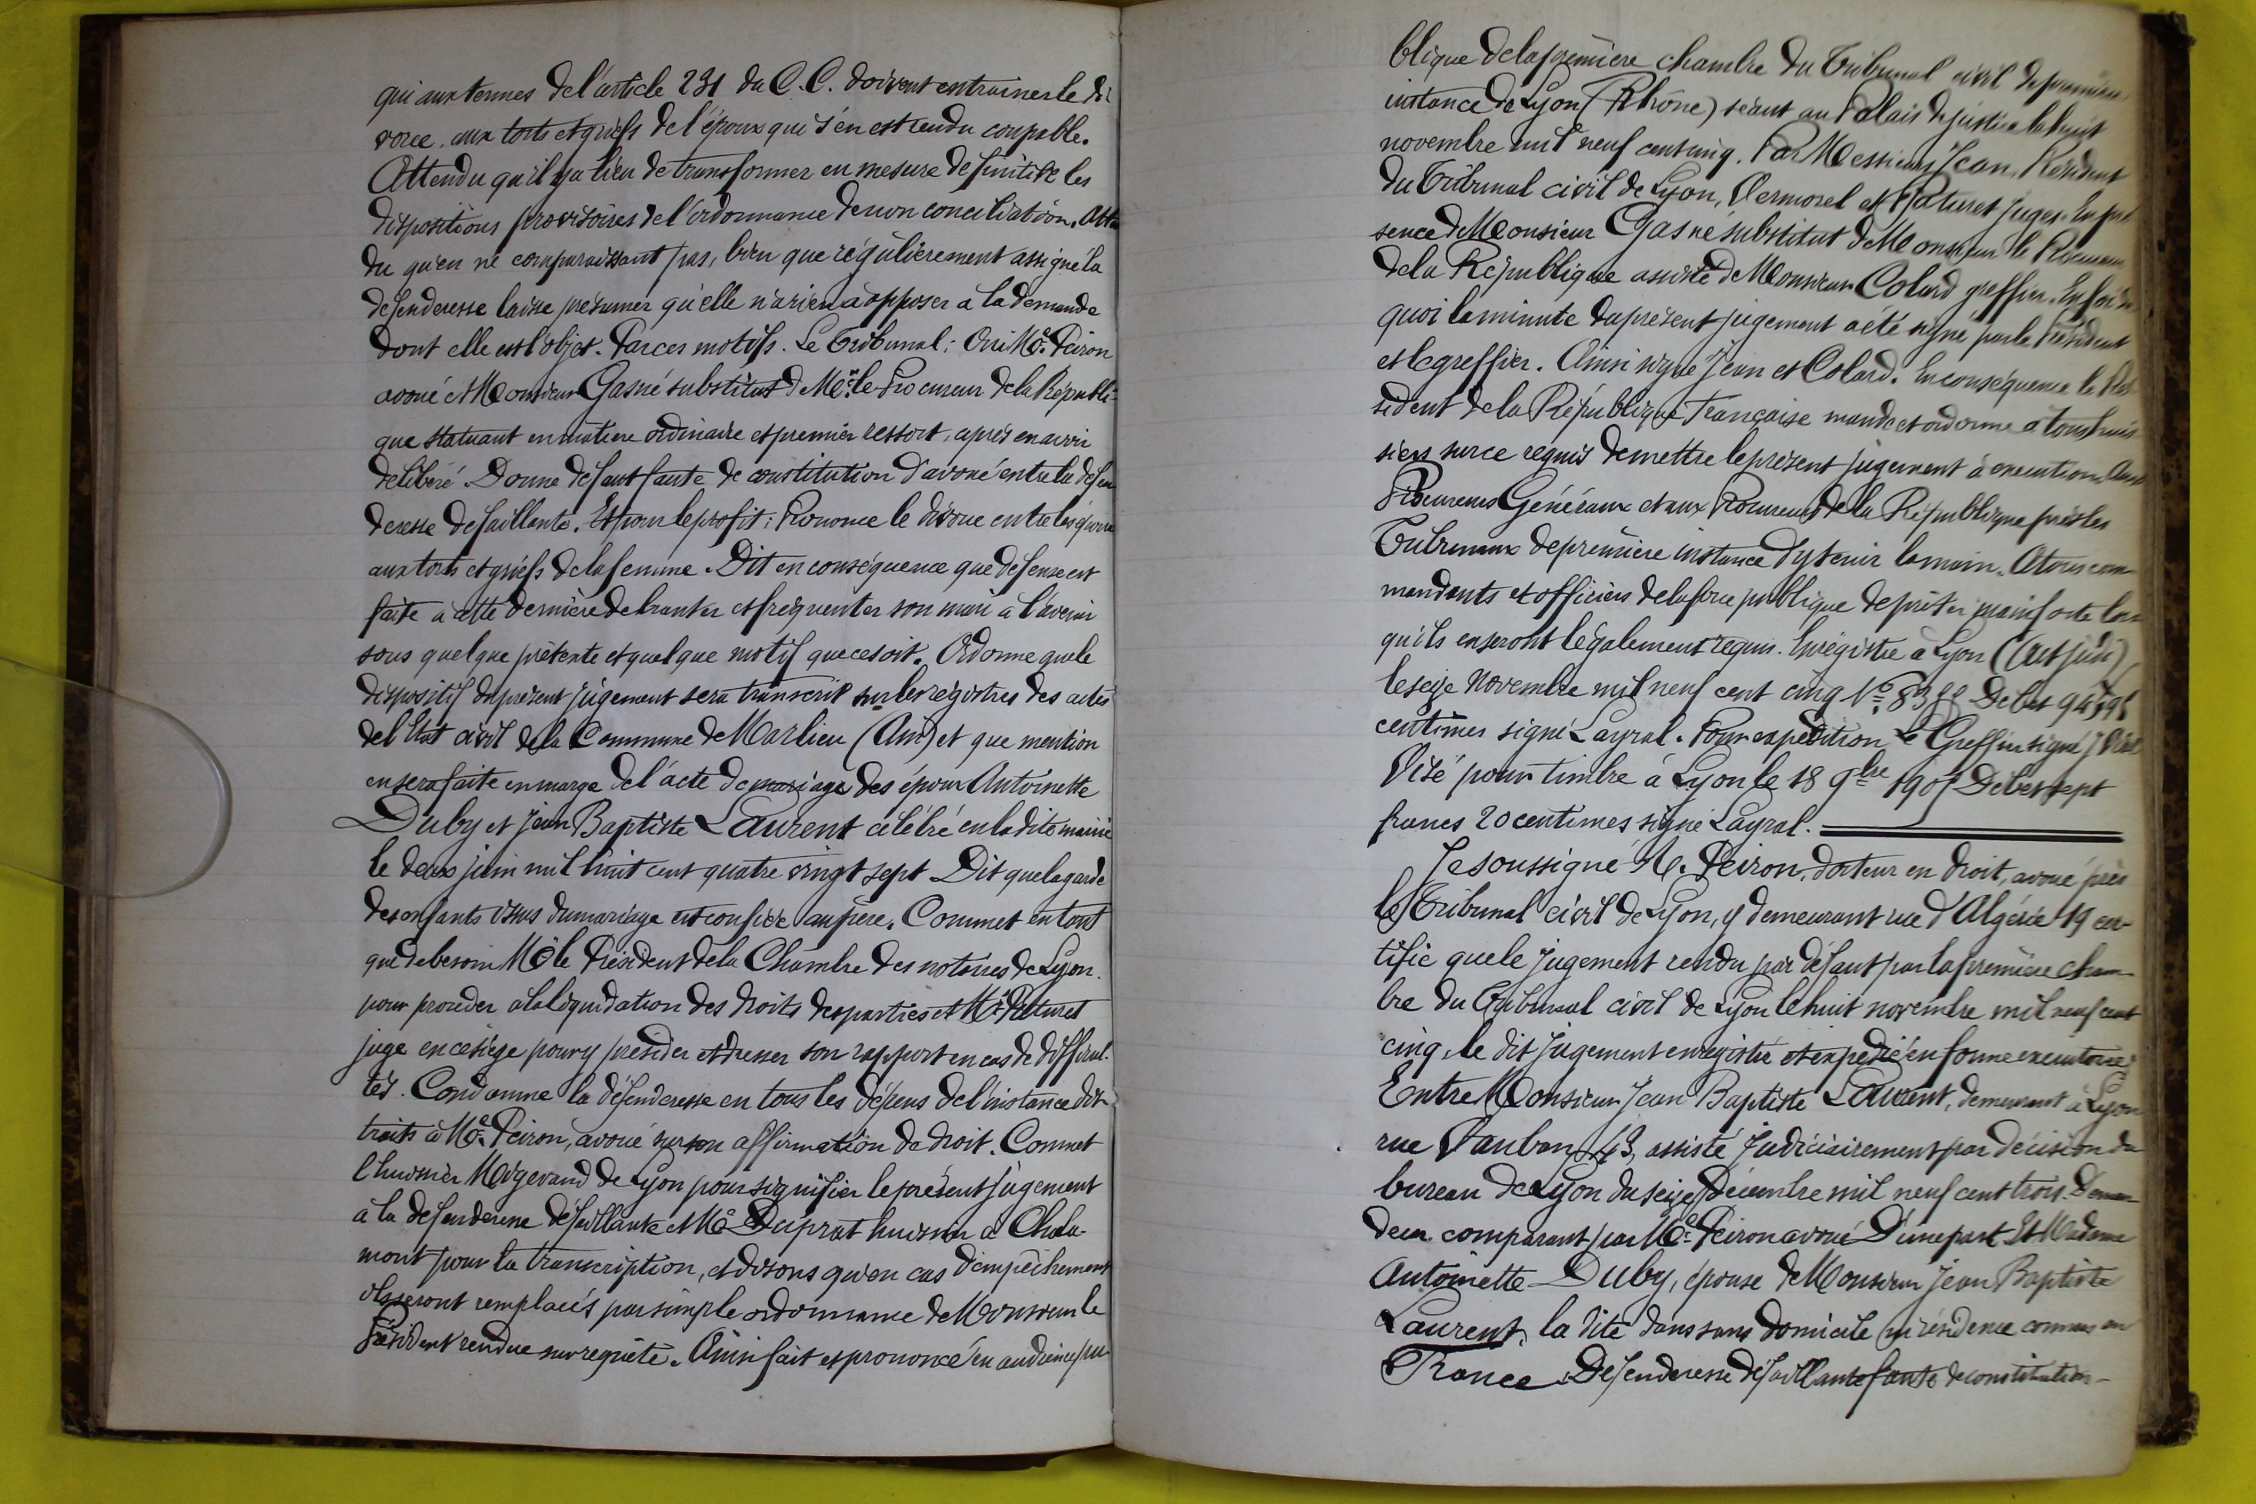 qui aux termes de l'article 231 du C.C. doivent entrainer le di
vorce, aux torts et griefs de l'époux qui s'en est rendu coupable.
Attendu qu'il y a lieu de transformer en mesure definitive les
dispositions provisoires de l'ordonnance de non conciliation. Atten
du qu'en ne comparaissant pas, bien que régulièrement assignée la
defenderesse laisse présumer qu'elle n'a rien à opposer à la demande
dont elle est l'objet. Par ces motifs. Le Tribunal: Oui Me. Peiron
avoué et Monsieur Gasné substitut de Mr. le Procureur de la Républi-
que statuant en matiere ordinaire et premier ressort, après en avoir
délibéré. Donne défaut faute de constitution d'avoué entre la défen
deresse defaillante. Et pour le profit: Prononce le divorce entre les époux
aux torts et griefs de la femme. Dit en conséquence que défense est
faite à cette dernière de hanter et fréquenter son mari à l'avenir
sous quelque prétexte et quelque motif que ce soit. Ordonne que le
dispositif du présent jugement sera transcrit sur les registres des actes
de l'Etat civil de la Commune de Marlieu (Ain) et que mention
en sera faite en marge de l'acte de mariage des époux Antoinette
Duby et Jean Baptiste Laurent célébré en la dite mairie
le deux juin mil huit cent quatre vingt sept Dit que la garde
des enfants issus du mariage est confiée au père. Commet en tant
que de besoin Mr le Président de la Chambre des notaires de Lyon.
pour procéder à la liquidation des droits des parties et Mr. Paturet
juge en ce siège pour y présider et dresser son rapport en cas de difficul-
tés. Condamne la défenderesse en tous les dépens de l'instance dis-
traits à Me. Peiron, avoué sur son affirmation de droit. Commet
l'huissier Mogerand de Lyon pour signifier le présent jugement
à la defenderesse défaillante et Me Duprat huissier à Chala-
mont pour la transcription, et disons qu'en cas d'empêchement
ils seront remplacés par simple ordonnance de Monsieur le
Président rendue sur requête. Ainsi fait et prononcé en audience pu
blique de la première chambre du Tribunal civil de première
instance de Lyon (Rhône) séant au Palais de justice le huit
novembre mil neuf cent cinq. Par Messieurs Jean, Président
du Tribunal civil de Lyon, Vermorel et Paturet juges. En pré
sence de Monsieur Gasné substitut de Monsieur le Procureur
de la République assisté de Monsieur Colard greffier. En foi de
quoi la minute du présent jugement a été signé par le Président
et le greffier. Ainsi signé Jean et Colard. En conséquence le Pré
sident de la République Française mande et ordonne à tous huis
siers sur ce requis de mettre le présent jugement à execution. Aux
Procureurs Généraux et aux Procureurs de la République près les
Tribunaux de première instance d'y tenir la main. A tous com
mandants et officiers de la force publique de prêter main forte lors
qu'ils en seront légalement requis. Enregistré à Lyon (Act jud)
le seize novembre mil neuf cent cinq No. 8388 Debet 94f,95
centimes signé Layral. Pour expédition Le Greffier signé J Vial
Visé pour timbre à Lyon le 18 9bre 1905 Debet sept
francs 20 centimes signé Layral.
Je soussigné M. Peiron, docteur en droit, avoué près
le Tribunal civil de Lyon, y demeurant rue d'Algérie 19 cer-
tifie que le jugement rendu par défaut par la première cham
bre du Tribunal civil de Lyon le huit novembre mil neuf cent
cinq, le dit jugement enregistré et expédié en forme exécutoire.
Entre Monsieur Jean Baptiste Laurent, demeurant à Lyon
rue Vauban 43, assisté judiciairement par décision du
bureau de Lyon du seize Décembre mil neuf cent trois. Deman
deur comparant par Me. Peiron avoué D'une part Et Madame
Antoinette Duby, épouse de Monsieur Jean Baptiste
Laurent, la dite dans sans domicile ni résidence connus en
France. Défenderesse défaillante faute de constitution